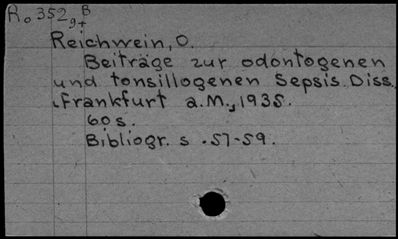 R. 352, B
9+
Reichwein, O.
Beiträge zur odontogenen
und tonsillogenen Sepsis. Diss.,
Frankfurt a.M., 1935.
60 s.
Bibliogr. s. 57-59.